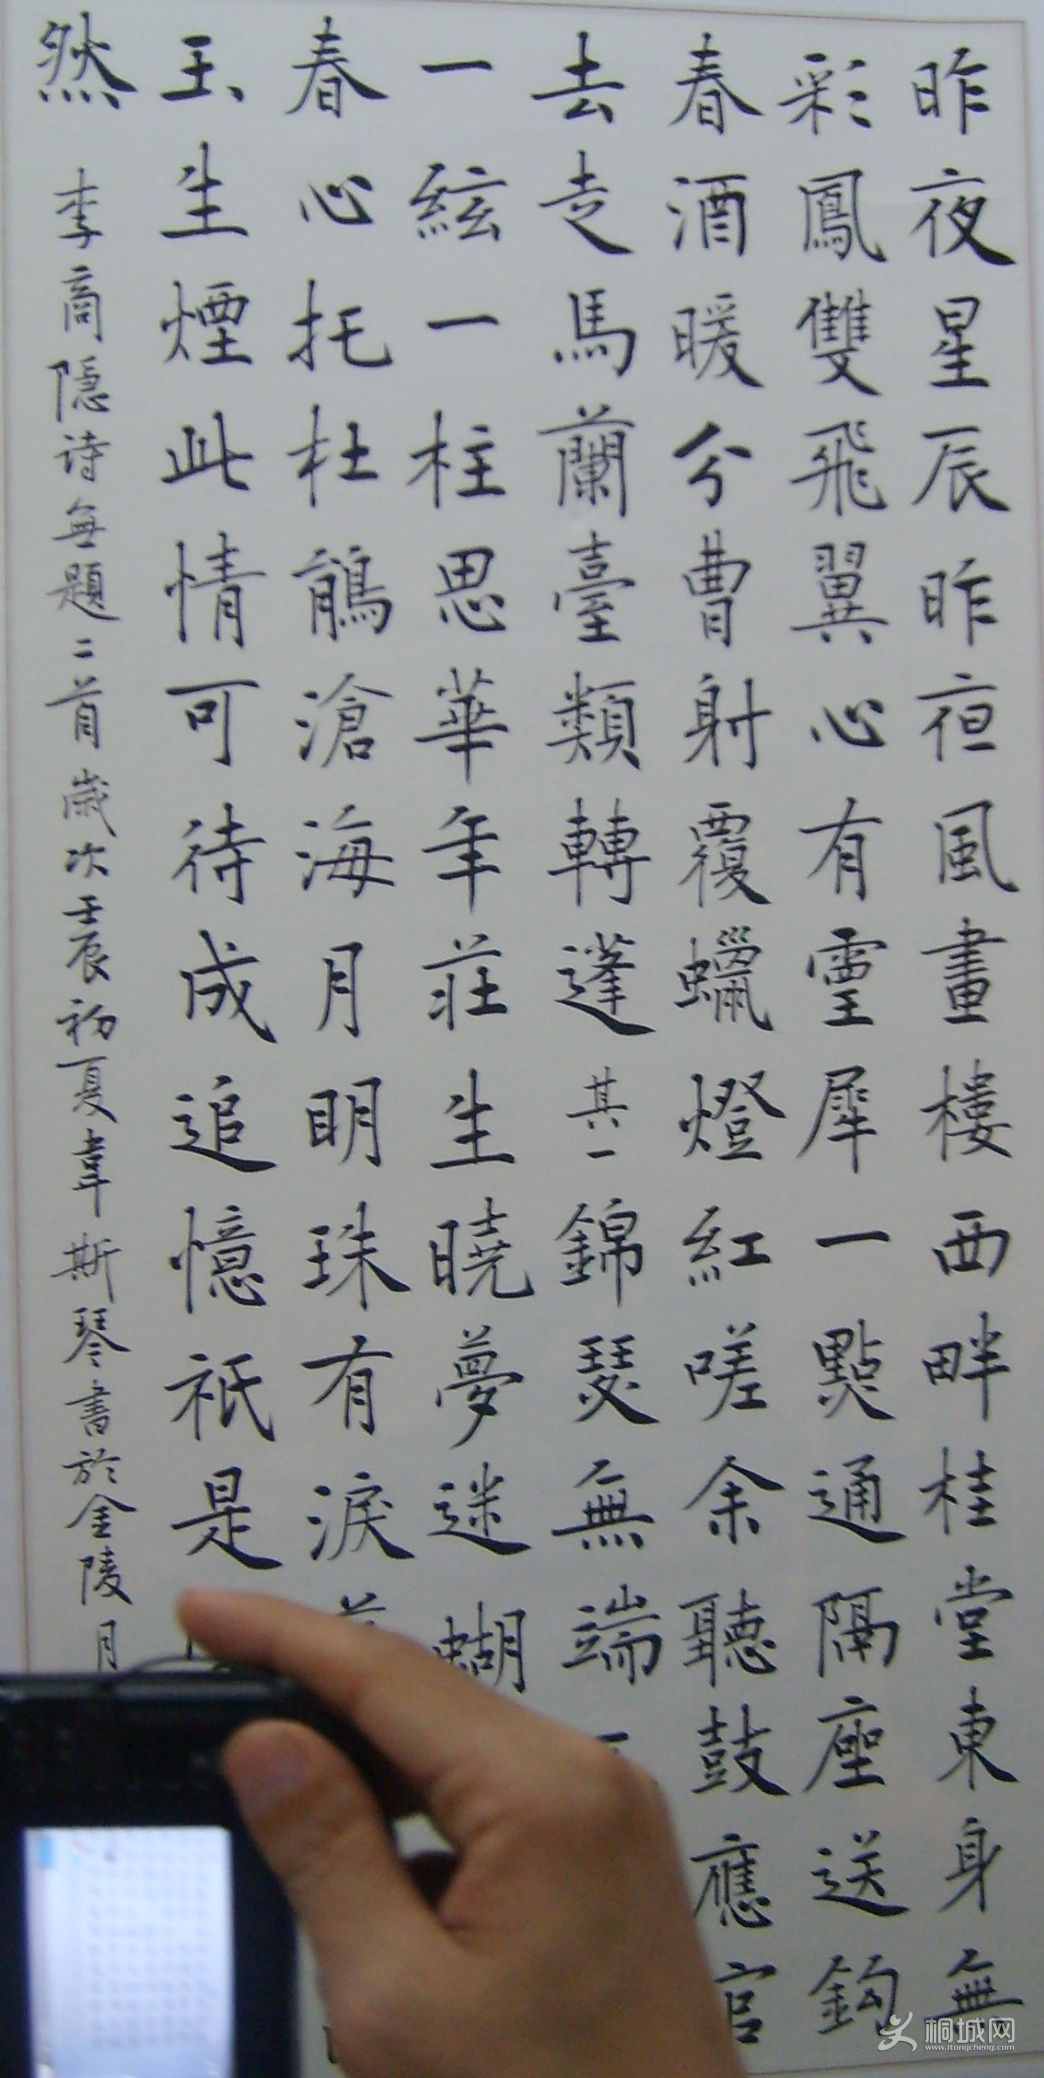 昨夜星辰昨夜風畫樓西畔桂堂東身無
彩鳳雙飛翼心有靈犀一點通隔座送鈎
春酒暖分曹射覆蠟燈紅嗟余聽鼓應官
去走馬蘭臺類轉蓬其一錦瑟無端
一絃一柱思華年莊生曉夢迷蝴
春心托杜鵑滄海月明珠有淚
玉生煙此情可待成追憶祇是
然
李商隱诗無題二首歲次壬辰初夏韋斯琴書於金陵月
桐城网
www.itongcheng.com